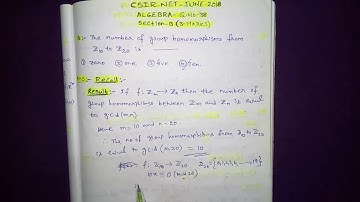 CSIR-NET-JUNE-2018
ALGEBRA- Q.NO-38
Section-B (3-Marks)
Q:- The number of group homomorphisms from
Z10 to Z20 is
① zero ② one ③ five ④ ten
Recall:-
Result:- If f: Zm→Zn then the number of
group homomorphisms between Zm and Zn is equal
to g.c.d(m,n)
Here m=10 and n=20.
∴ The no of group homomorphisms from Z10 to Z20
is equal to g.c.d (10,20) = 10
f: Z10 → Z20
10x ≡ 0 (mod 20)